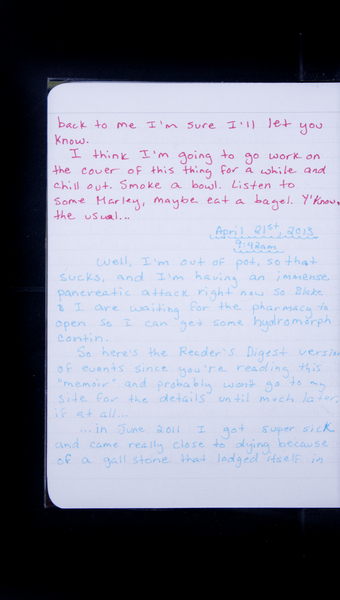 back to me I'm sure I'll let you
know.
I think I'm going to go work on
the cover of this thing for a while and
chill out. Smoke a bowl. Listen to
some Marley, maybe eat a bagel. Y'know,
the usual...
April 21st, 2013
9:42am
Well, I'm out of pot, so that
sucks, and I'm having an immense
pancreatic attack right now so Blake
& I are waiting for the pharmacy to
open so I can get some hydromorph
contin.
So here's the Reader's Digest version
of events since you're reading this
"memoir" and probably wont go to my
site for the details until much later,
if at all...
...in June 2011 I got super sick
and came really close to dying because
of a gall stone that lodged itself in